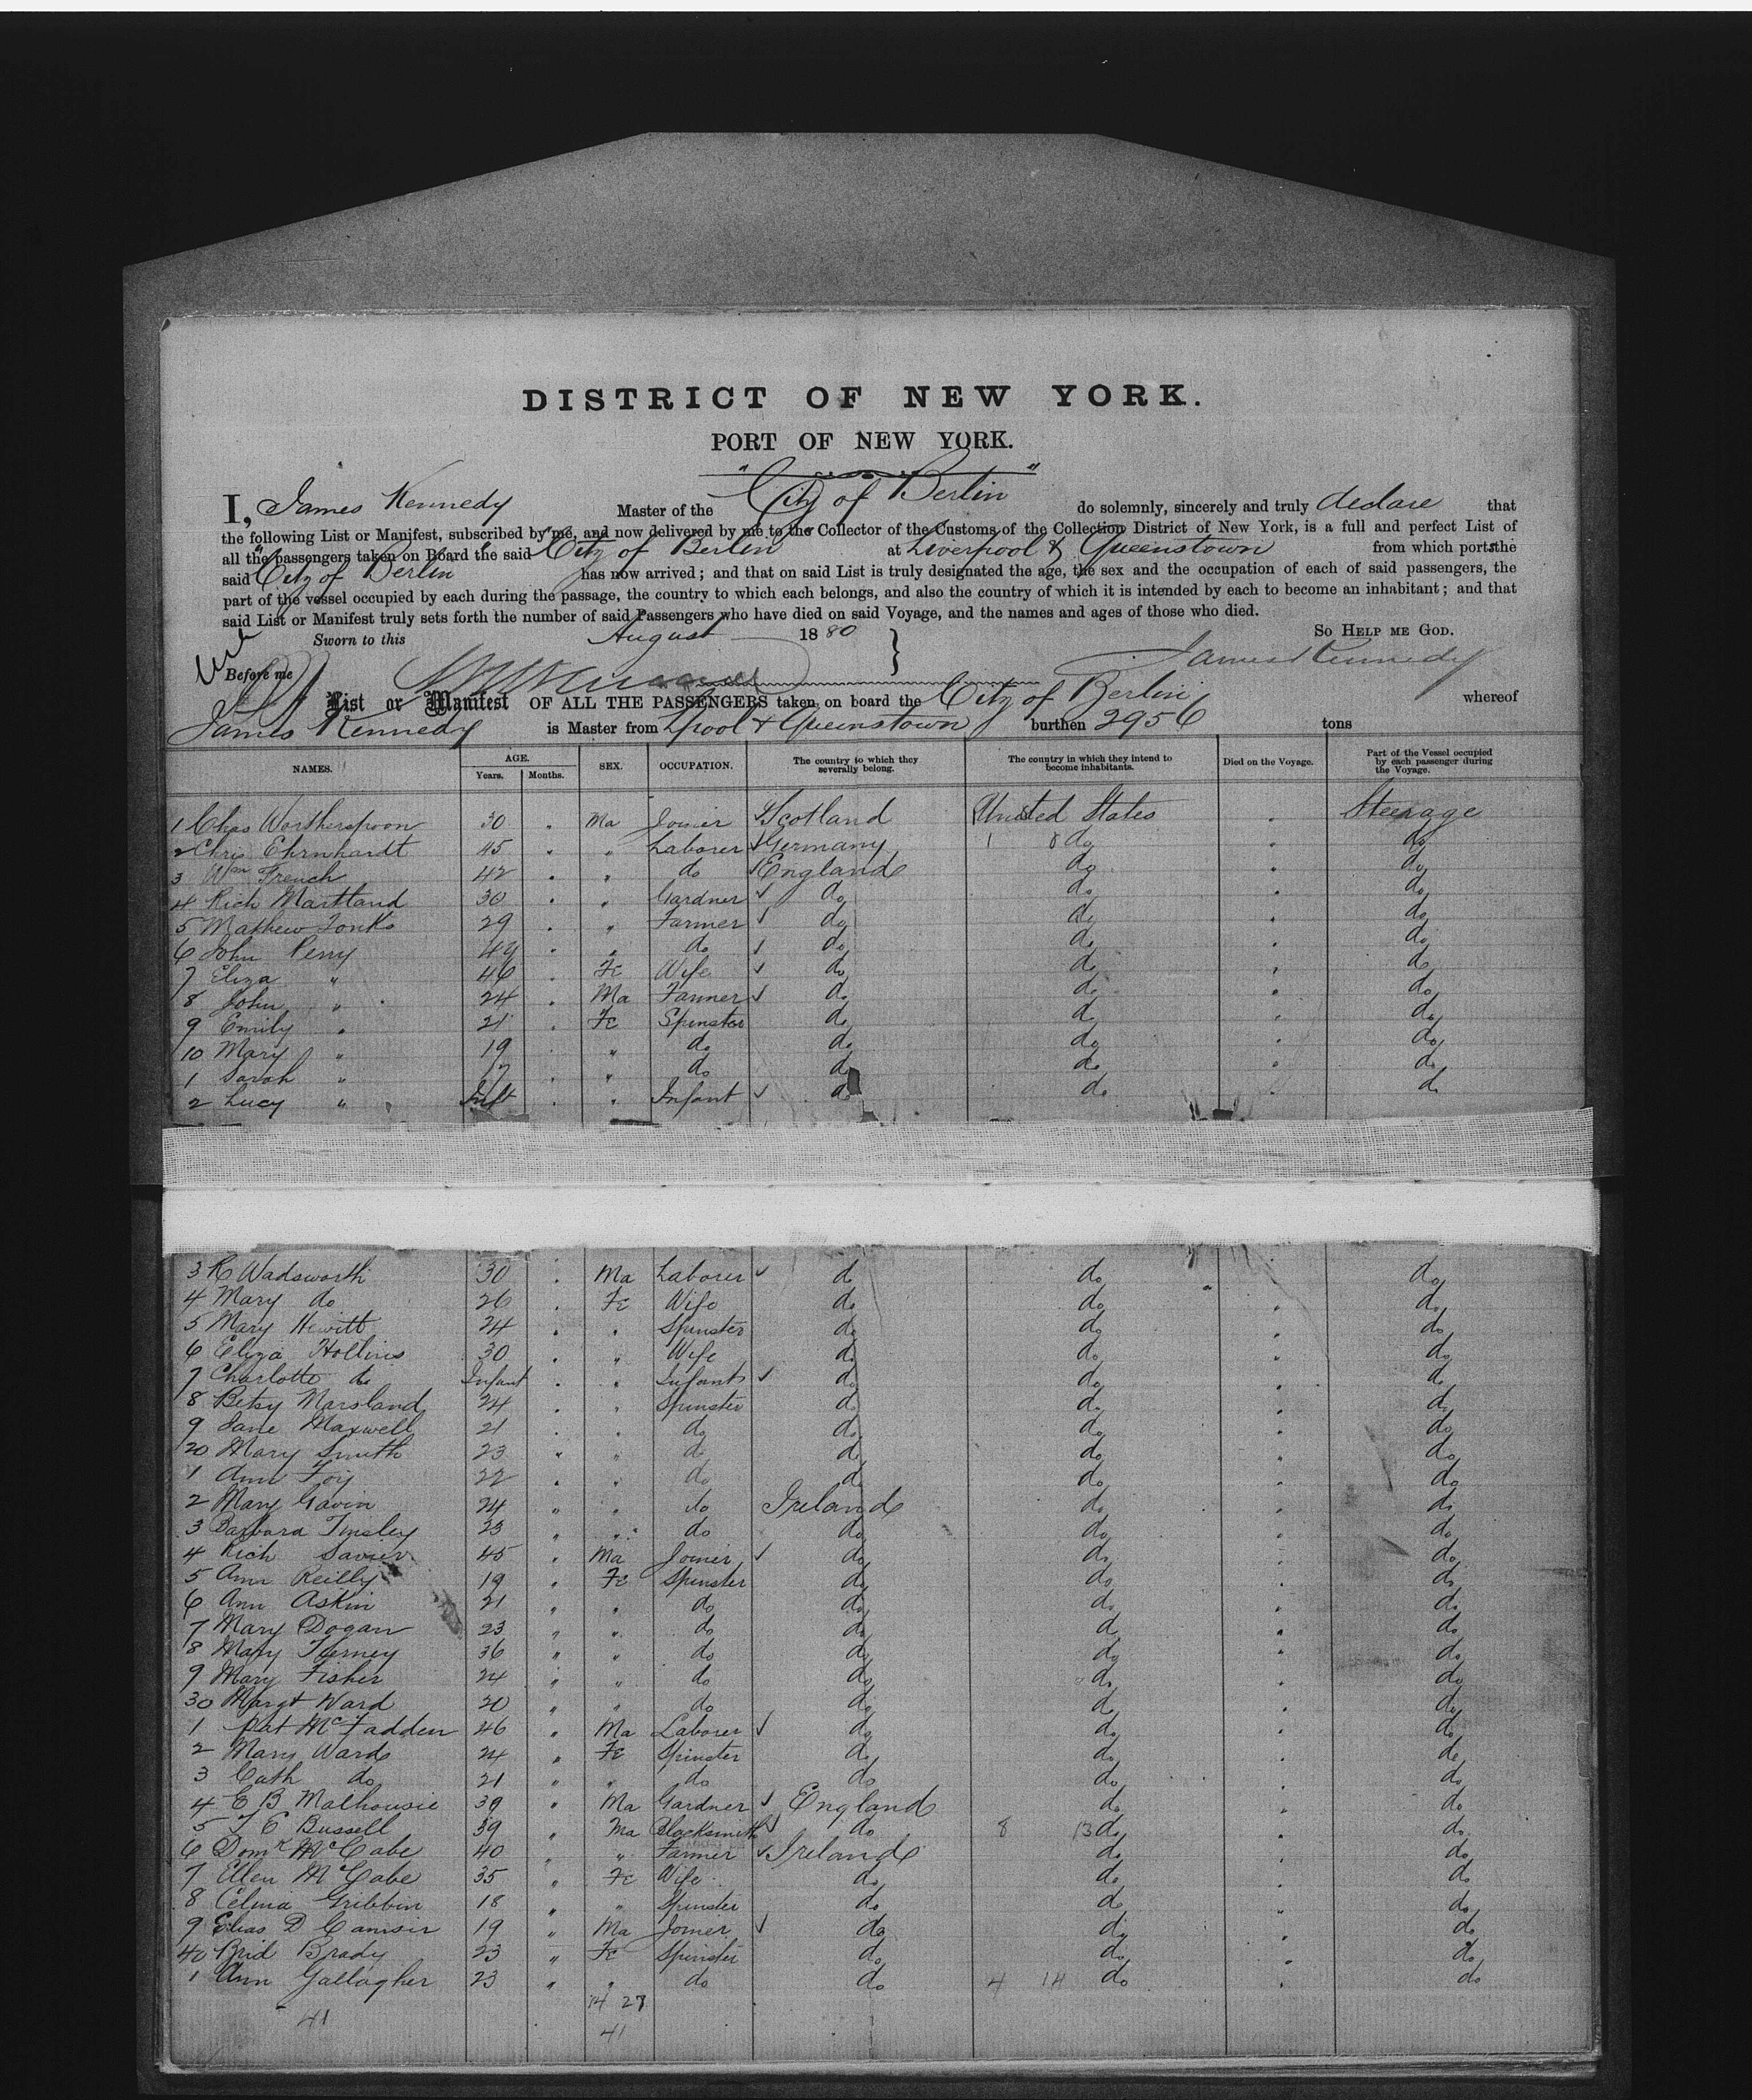 DISTRICT OF NEW YORK.
PORT OF NEW YORK.
I, James Kennedy Master of the "City of Berlin" do solemnly, sincerely and truly declare that
the following List or Manifest, subscribed by me, and now delivered by me to the Collector of the Customs of the Collection District of New York, is a full and perfect List of
all the passengers taken on Board the said City of Berlin at Liverpool & Queenstown from which ports the
said City of Berlin has now arrived; and that on said List is truly designated the age, the sex and the occupation of each of said passengers, the
part of the vessel occupied by each during the passage, the country to which each belongs, and also the country of which it is intended by each to become an inhabitant; and that
said List or Manifest truly sets forth the number of said Passengers who have died on said Voyage, and the names and ages of those who died.
Sworn to this August 1880 So HELP ME GOD.
Before me James Kennedy
List or Manifest OF ALL THE PASSENGERS taken on board the City of Berlin whereof
James Kennedy is Master from Lpool & Queenstown burthen 2956 tons
NAMES. AGE. Years. Months. SEX. OCCUPATION. The country to which they severally belong. The country in which they intend to become inhabitants. Died on the Voyage. Part of the Vessel occupied by each passenger during the Voyage.
1 Chas Wortherspoon 30 Ma Joiner Scotland United States Steerage
2 Chris Ehrnhardt 45 " Laborer Germany 1 8 do do
3 Wm French 42 " do England do do
4 Rich Maitland 30 " Gardner do do do
5 Mathew Tonks 29 " Farmer do do do
6 John Perry 49 " do do do do
7 Eliza " 46 Fe Wife do do do
8 John " 24 Ma Farmer do do do
9 Emily " 21 Fe Spinster do do do
10 Mary " 19 " do do do do
1 Sarah " 17 " do do do do
2 Lucy " Inft " Infant do do do
3 R Wadsworth 30 Ma Laborer do do do
4 Mary do 26 Fe Wife do do do
5 Mary Hewitt 24 " Spinster do do do
6 Eliza Hollins 30 " Wife do do do
7 Charlotte do Infant " Infant do do do
8 Betsy Marsland 24 " Spinster do do do
9 Jane Maxwell 21 " do do do do
20 Mary Smith 23 " do do do do
1 Ann Foy 22 " do do do do
2 Mary Gavin 24 " " do Ireland do do
3 Barbara Tinsley 23 " " do do do do
4 Rich 45 " Ma Joiner do do do
5 Ann Reilly 19 " Fe Spinster do do do
6 Ann Askin 21 " " do do do do
7 Mary Dogan 23 " " do do do do
8 Mary Tierney 36 " " do do do do
9 Mary Fisher 24 " " do do do do
30 Margt Ward 20 " " do do do do
1 Pat McFadden 46 " Ma Laborer do do do
2 Mary Ward 24 " Fe Spinster do do do
3 Cath do 21 " " do do do do
4 E B Malhousie 39 " Ma Gardner England do do
5 T C Bussell 39 " Ma Blacksmith do 8 13 do do
6 Domk McCabe 40 " " Farmer Ireland do do
7 Ellen McCabe 35 " Fe Wife do do do
8 Celina Gribbin 18 " " Spinster do do do
9 Elias D 19 " Ma Joiner do do do
40 Brid Brady 23 " Fe Spinster do do do
1 Ann Gallagher 23 " " do do 4 14 do do
14 27
41 41